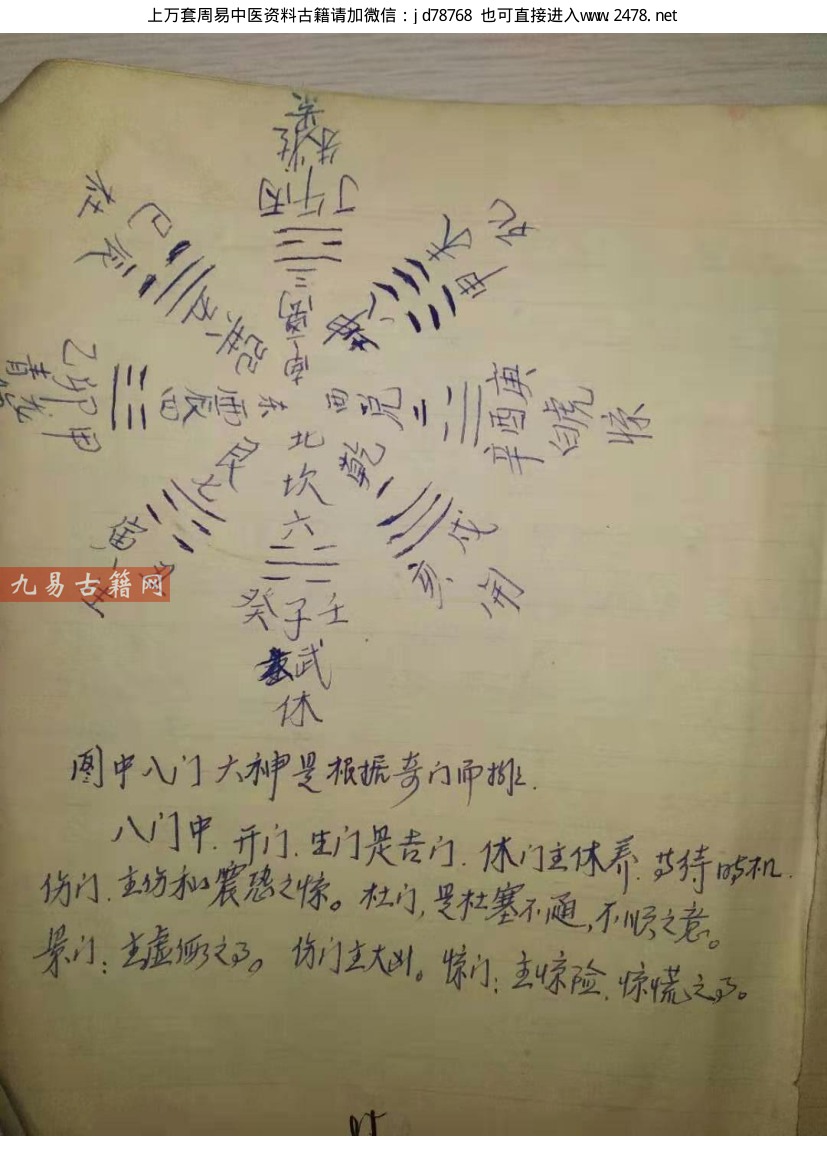 上万套周易中医资料古籍请加微信：jd78768 也可直接进入www.2478.net
景
朱雀
丁午丙
三
离
南
杜
辰 巳
巽五
死
未 申
坤八
乙卯甲
青龙
震四
东
西
兑二
辛酉庚
白虎
惊
艮七
乾一
戌
亥
开
北
坎
六
癸子壬
武
休
九易古籍网
图中八门大神是根据奇门而排.
八门中.开门.生门是吉门.休门主休养.等待时机.
伤门.主伤和震恐之惊。杜门,是杜塞不通,不顺之意。
景门:主虚伪之事。伤门主大凶。惊门:主惊险.惊慌之事。